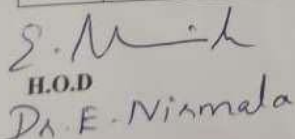 H.O.D
Dr. E. Nirmala